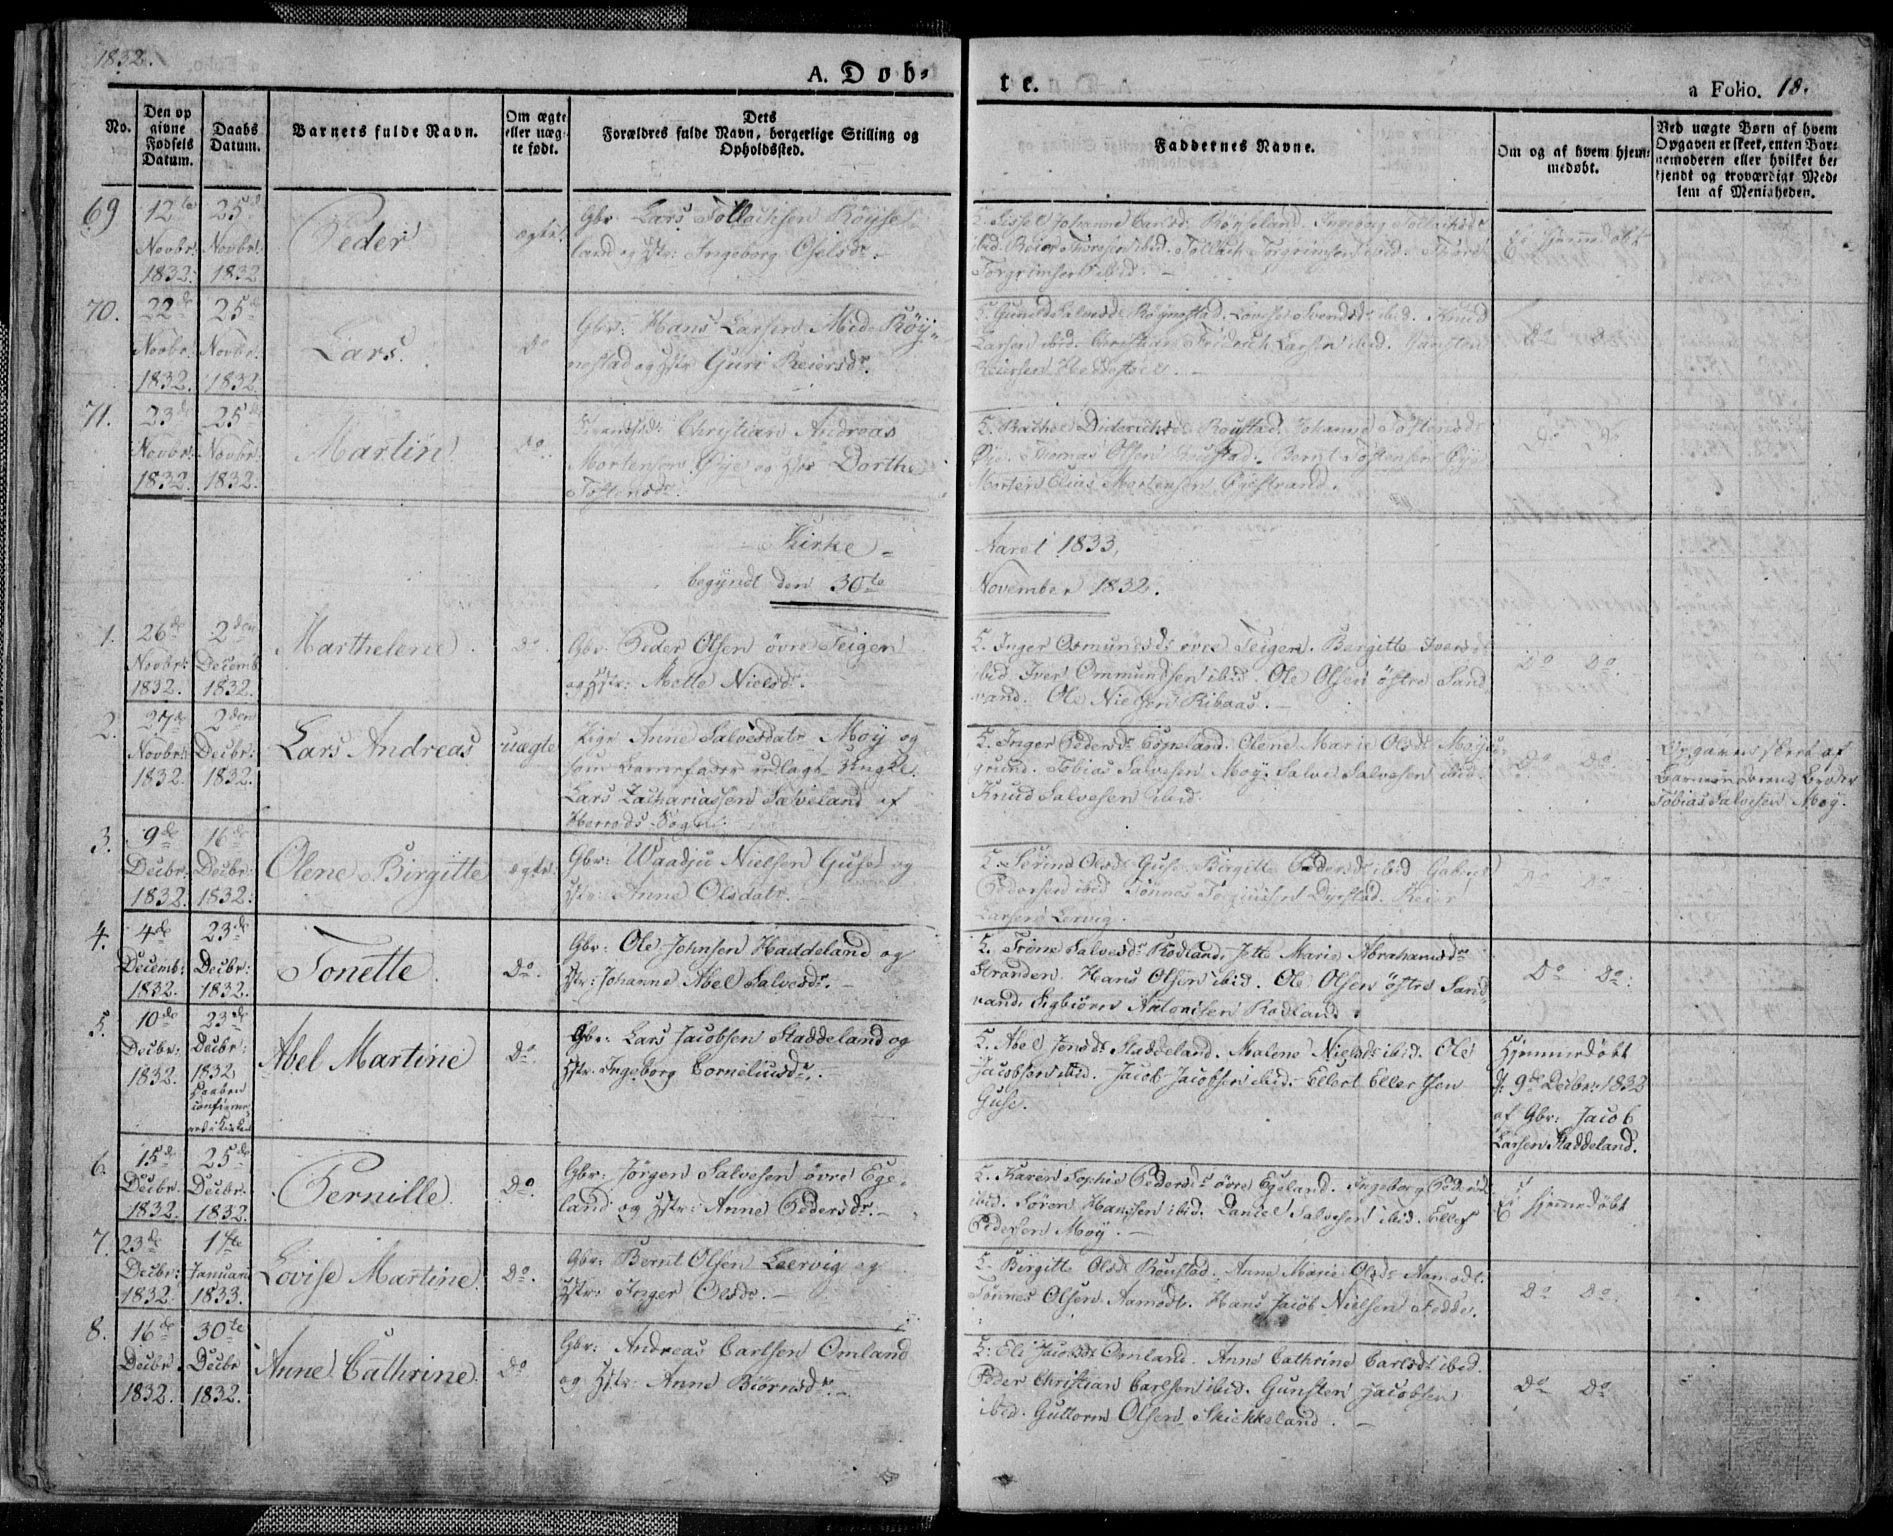 1832.
A. Døb-
te.
a Folio. 18.
No.
Den op
givne
Fødsels
Datum.
Daabs
Datum.
Barnets fulde Navn.
Om ægte
eller uæg-
te født.
Dets
Forældres fulde Navn, borgerlige Stilling og
Opholdssted.
Faddernes Navne.
Om og af hvem hjem-
medøbt.
Ved uægte Børn af hvem
Opgaven er skeet, enten Bar-
nemoderen eller hvilket be-
kjendt og troværdigt Med-
lem af Menigheden.
69
12te
Novbr:
1832.
25de
Novbr:
1832
Peder
ægte.
Gbr: Lars Tollachsen Røysse-
land og Hstr: Ingeborg Oselsdr.
Torgrimsen ibid.
Ei hjemmedøbt
70.
22de
Novbr:
1832.
25de
Novbr:
1832
Lars.
Do
Gbr: Hans Larsen Mid-Røy-
nestad og Hstr Guri Reiersdr.
Larsen ibid. Christian Friderich Larsen ibid.
Do Do
71.
23de
Novbr:
1832.
25de
Novbr:
1832.
Martin
Do.
Christian Andreas
Mortensen Øye og Hstr Dorthe
Tostensdr.
Øye. Thomas Olsen Røustad. Bernt Tostensen Øye
Morten Elias Mortensen Øyestrand.
Do Do
Kirke-
Aaret 1833,
begyndt den 30te
November 1832.
1.
26de
Novbr:
1832.
2den
Decemb
1832.
Marthelene
Do
Gbr Peder Olsen øvre Teigen
og Hstr: Mette Nielsdr.
F. Inger Osmundsdr øvre Teigen. Bergitte Iversdr
ibid. Iver Ommundsen ibid. Ole Olsen østre Sand-
vand. Ole Nielsen Ribaas.
Do Do
2.
27de
Novbr:
1832.
2den
Decbr:
1832.
Lars Andreas
uægte
Pige Anne Salvesdatr Moy og
som Barnefader udlagt Ungkl.
Lars Zachariassen Sæveland af
Herreds Sogn.
F. Inger Pedersdr Egeland. Olene Marie Olsdr Moyse-
grund. Tobias Salvesen Moy. Salve Salvesen ibid.
Knud Salvesen ibid.
Do Do.
Opgaven skeet af
Barnemoderens Broder
Tobias Salvesen Moy.
3.
9de
Decbr.
1832.
16de
Decbr:
1832.
Olene Birgitte
ægte.
Gbr: Waadju Nielsen Guse og
Hstr: Anne Olsdatr.
F. Serine Olsdr Guse. Birgitte Pedersdr ibid Gabriel
Pedersen ibid Tønnes Dyrstad. Reier
Larsen Lervig.
Do Do
4.
4de
Decemb:
1832.
23de
Decbr:
1832.
Tonette
Do.
Gbr: Ole Johnsen Haddeland og
Hstr: Johanne Abel Salvesdr.
F. Trone Salvesdr Rødland. Jette Marie Abrahamsdr
Stranden. Hans Olsen ibid. Ole Olsen østre Sand-
vand. Sigbiørn Antonisen Rødland.
Do Do:
5.
10de
Decbr:
1832.
23de
Decbr:
1832
Daaben
confirme-
red i Kirken
Abel Martine
Do.
Gbr: Lars Jacobsen Staddeland og
Hstr: Ingeborg Corneliusdr.
F. Abel Jensdr Staddeland. Malene Nielsdr ibid. Ole
Jacobsen ibid. Jacob Jacobsen ibid. Ellert Ellertsen
Guse.
Hjemmedøbt
d: 9de Decbr: 1832
af Gbr: Jacob
Larsen Staddeland.
6.
15de
Decbr.
1832.
25de
Decbr.
1832.
Pernille
Do.
Gbr: Jørgen Salvesen øvre Ege-
land og Hstr: Anne Pedersdr.
F. Karen Sophie Pedersdr øvre Egeland. Ingeborg Pedersdr
ibid. Søren Hansen ibid. Daniel Salvesen ibid. Ellef
Pedersen Moy.
Ei hjemmedøbt
7.
23de
Decbr:
1832.
1ste
Januari
1833.
Lovise Martine
Do.
Gbr: Bernt Olsen Leervig og
Hstr: Inger Olsdr.
F. Birgitte Olsdr Røustad. Anne Marie Olsdr Aamodt.
Tønnes Olsen Aamodt. Hans Jacob Nielsen Fedde.
Do Do.
8.
16de
Decbr
1832.
30te
Decbr
1832.
Anne Cathrine.
Do
Gbr: Andreas Carlsen Omland
og Hstr: Anne Biørnsdr.
F: Eli Jacobsdr Omland. Anne Cathrine Carlsdr ibid.
Peder Christian Carlsen ibid. Gunsten Jacobsen
ibid. Guttorm Olsen Skiekkeland.
Do Do.